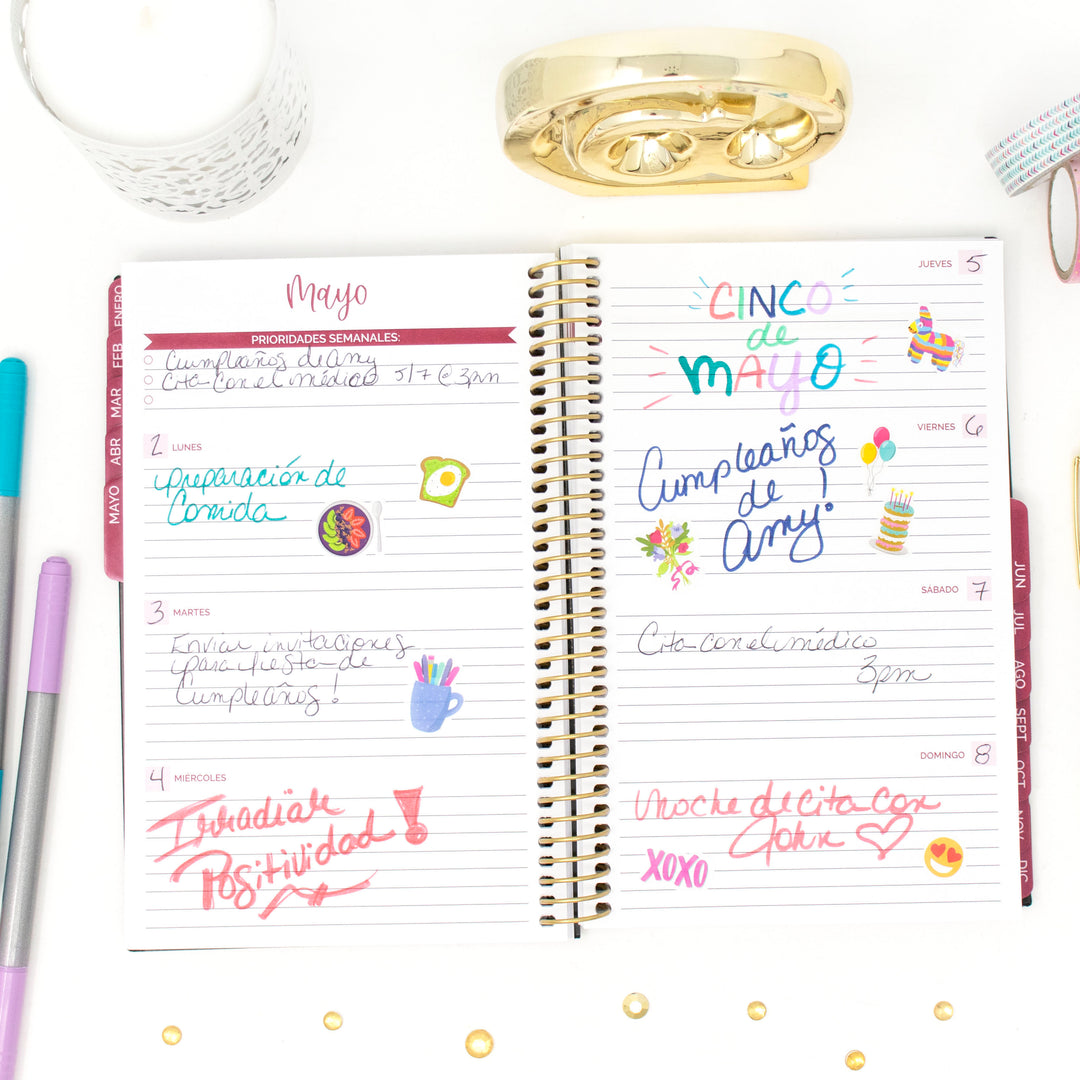 Mayo
PRIORIDADES SEMANALES:
Cumpleaños de Amy
Cita con el médico 5/7 @ 3pm
2 LUNES
preparación de
Comida
3 MARTES
Enviar invitaciones
para fiesta de
Cumpleaños!
4 MIÉRCOLES
Irradiar
Positividad!
ENERO
FEB
MAR
ABR
MAYO
JUEVES 5
CINCO
de
MAYO
VIERNES 6
Cumpleaños
de
Amy!
SÁBADO 7
Cita con el médico
3pm
DOMINGO 8
Noche de cita con
John
XOXO
JUN
JUL
AGO
SEPT
OCT
NOV
DIC